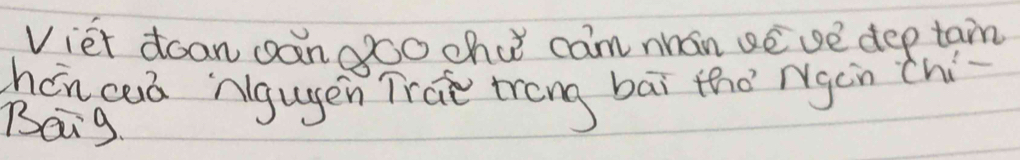 Viết đoạn văn 200 chữ cảm nhận về vẻ đẹp tâm
hồn của Nguyễn Trãi trong bài thơ Ngôn chí -
Bài 9.